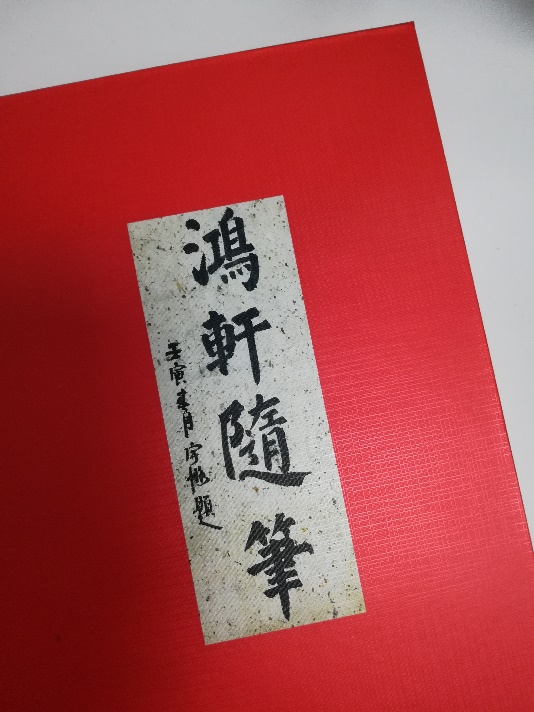 鴻軒隨筆
壬寅春月 題